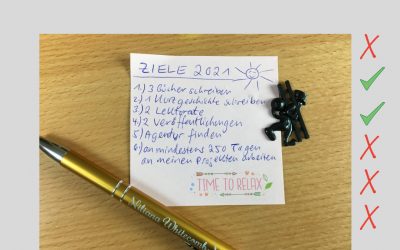 ZIELE 2021
1.) 3 Bücher schreiben
2.) 1 Kurzgeschichte schreiben
3.) 2 Lektorate
4.) 2 Veröffentlichungen
5.) Agentur finden
6.) an mindestens 250 Tagen
an meinen Projekten arbeiten
TIME TO RELAX
Whitecomb